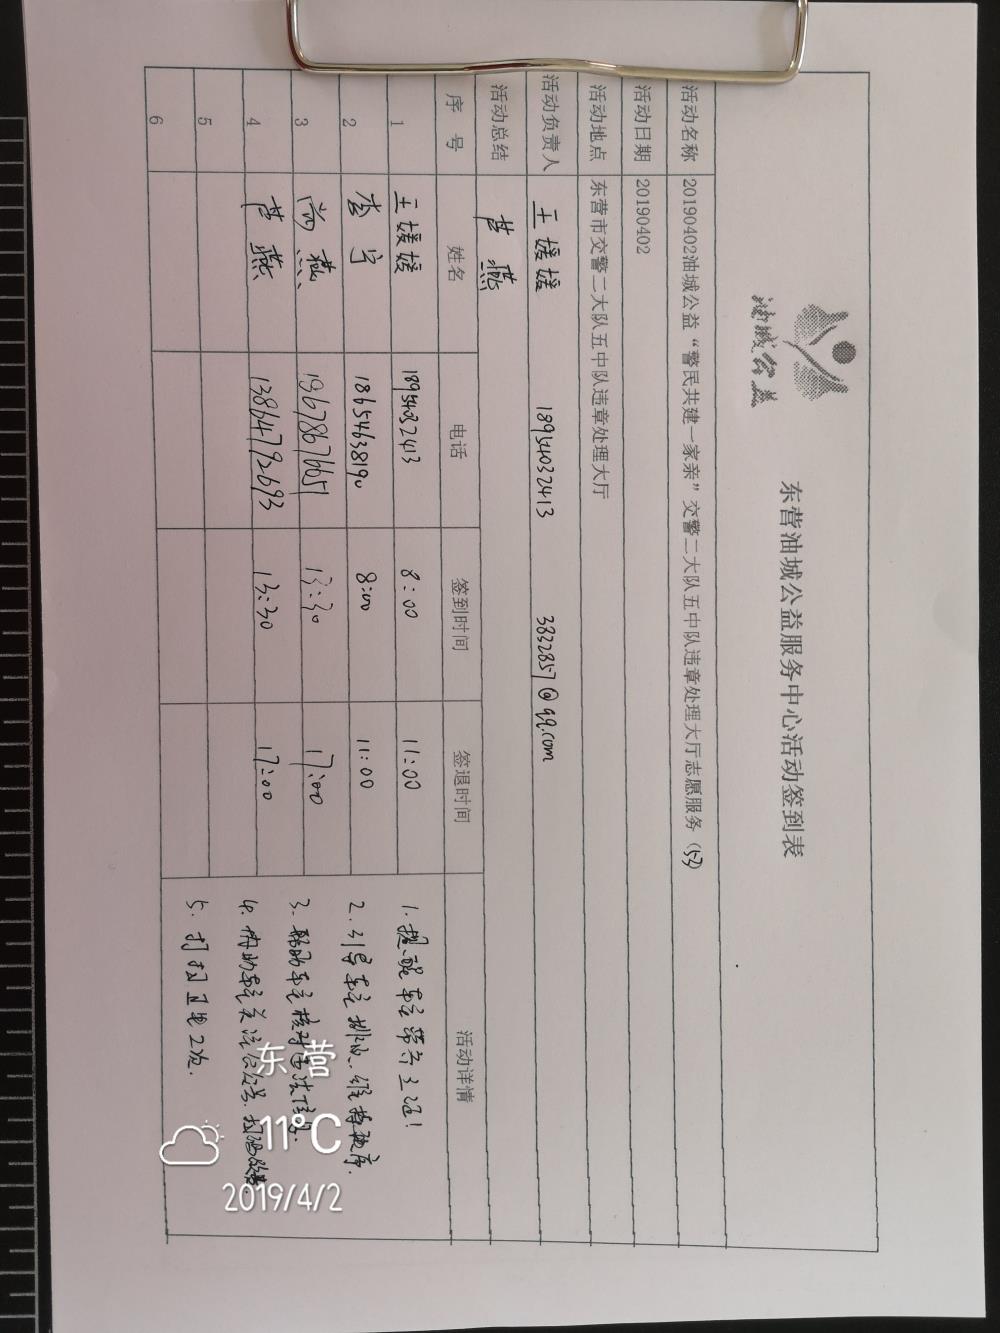 油城公益
东营油城公益服务中心活动签到表
活动名称 20190402油城公益“警民共建一家亲”交警二大队五中队违章处理大厅志愿服务(53)
活动日期 20190402
活动地点 东营市交警二大队五中队违章处理大厅
活动负责人 王媛媛 18954032413 3832857@qq.com
活动总结 燕
序号 姓名 电话 签到时间 签退时间 活动详情
1 王媛媛 18954032413 8:00 11:00
2 李宁 18654638190 8:00 11:00
3 尚燕 19678676651 13:30 17:00
4 燕 13864792693 13:30 17:00
5
6
1.提醒车主带齐三证!
2.引导车主排队、维持秩序.
3.帮助车主核对违法信息.
4.帮助车主关注公众号.
5.打扫卫生2次.
东营
11°C
2019/4/2